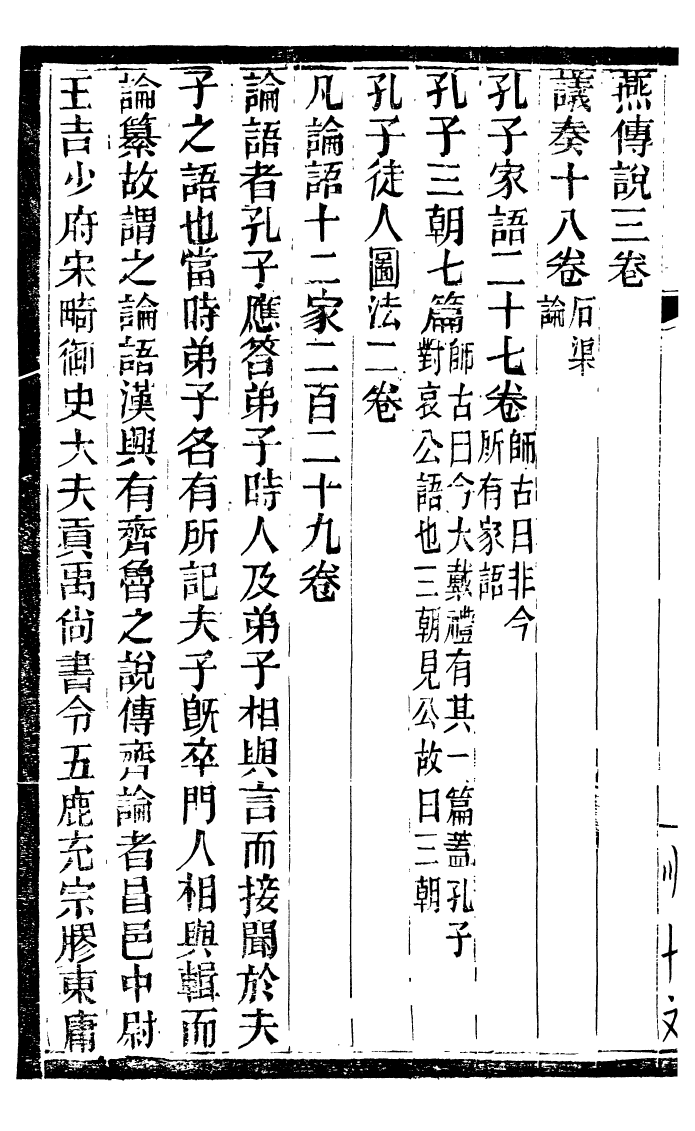 燕傳說三卷
議奏十八卷石渠論
孔子家語二十七卷師古曰非今所有家語
孔子三朝七篇師古曰今大戴禮有其一篇蓋孔子對哀公語也三朝見公故曰三朝
孔子徒人圖法二卷
凡論語十二家二百二十九卷
論語者孔子應答弟子時人及弟子相與言而接聞於夫
子之語也當時弟子各有所記夫子旣卒門人相與輯而
論纂故謂之論語漢興有齊魯之說傳齊論者昌邑中尉
王吉少府宋畸御史大夫貢禹尙書令五鹿充宗膠東庸